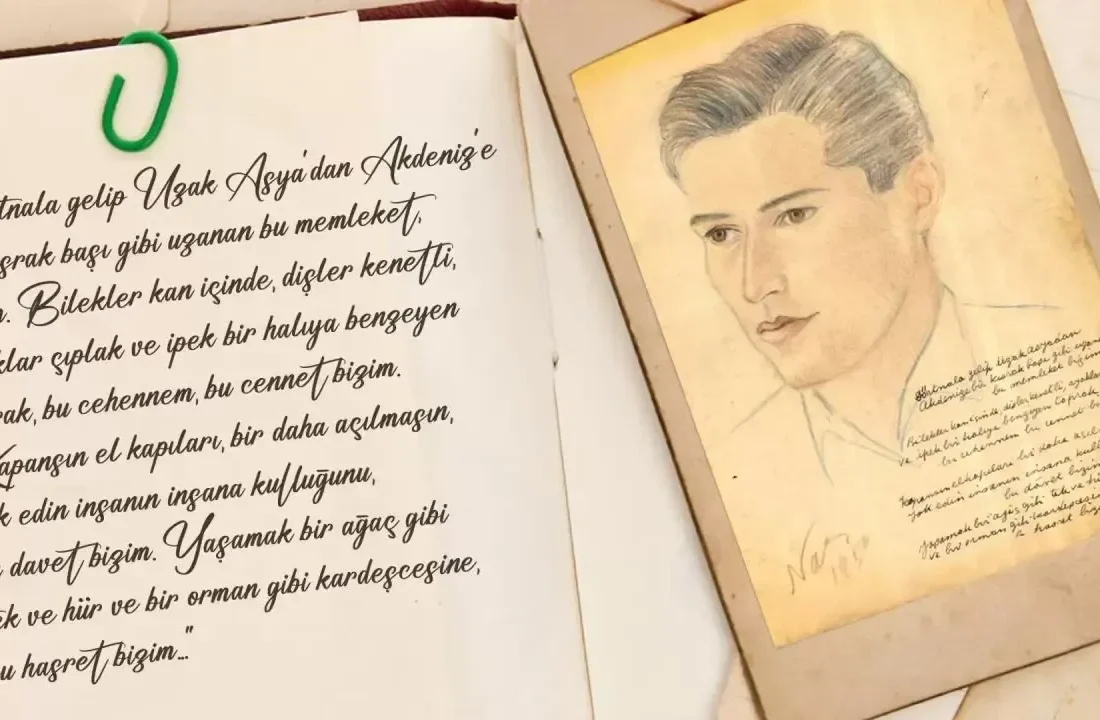 tnala gelip Uzak Asya'dan Akdeniz'e
srak başı gibi uzanan bu memleket,
Bilekler kan içinde, dişler kenetli,
klar çıplak ve ipek bir halıya benzeyen
rak, bu cehennem, bu cennet bizim.
Kapansın el kapıları, bir daha açılmasın,
k edin insanın insana kulluğunu,
davet bizim. Yaşamak bir ağaç gibi
ek ve hür ve bir orman gibi kardeşcesine,
u hasret bizim..."
Dörtnala gelip Uzak Asyadan
Akdenize bir kısrak başı gibi uzanan
bu memleket bizim
Bilekler kan içinde, dişler kenetli, ayaklar
ve ipek bir halıya benzeyen toprak
bu cehennem bu cennet
Kapansın el kapıları bir daha açıl
yok edin insanın insana kull
bu dâvet bizim
Yaşamak bir ağaç gibi tek ve hü
ve bir orman gibi kardeşçesi
hasret biz